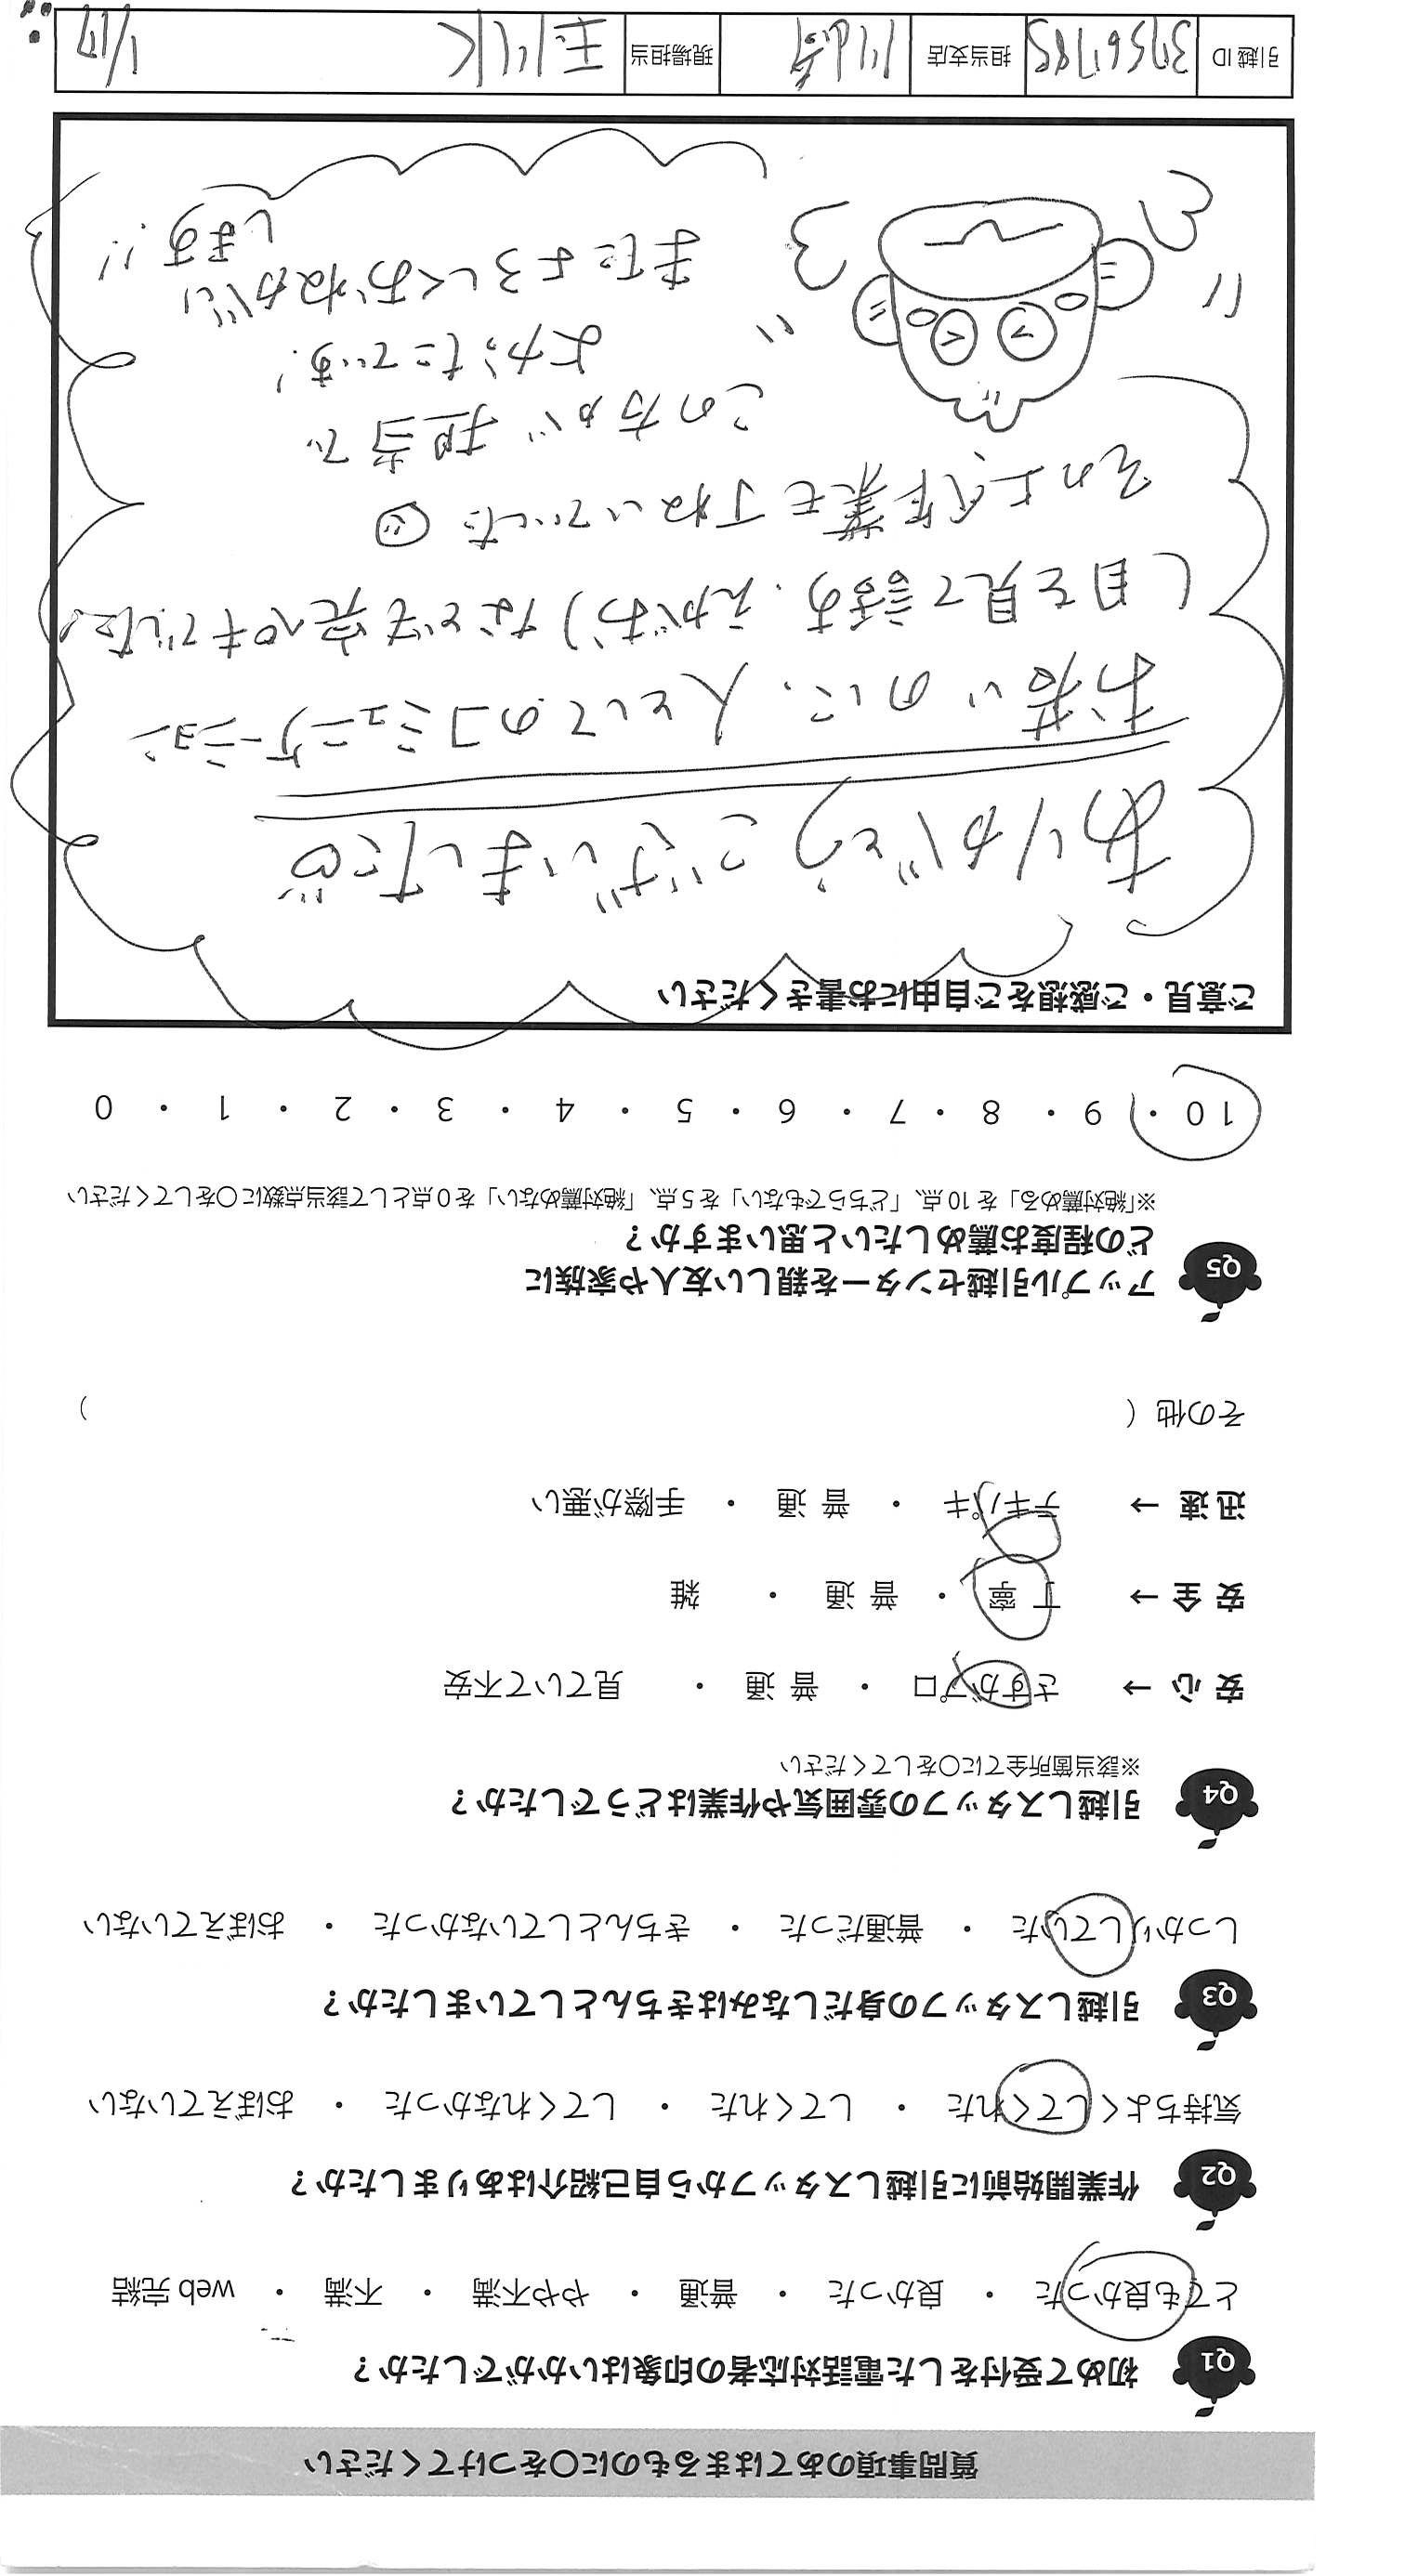 質問事項のあてはまるものに〇をつけてください
Q1 初めて受付をした電話対応者の印象はいかがでしたか？
とても良かった ・ 良かった ・ 普通 ・ やや不満 ・ 不満 ・ web 完結
Q2 作業開始前に引越しスタッフから自己紹介はありましたか？
気持ちよくしてくれた ・ してくれた ・ してくれなかった ・ おぼえていない
Q3 引越しスタッフの身だしなみはきちんとしていましたか？
しっかりしていた ・ 普通だった ・ きちんとしていなかった ・ おぼえていない
Q4 引越しスタッフの雰囲気や作業はどうでしたか？
※該当箇所全てに〇をしてください
安 心 → さすがプロ ・ 普 通 ・ 見ていて不安
安 全 → 丁 寧 ・ 普 通 ・ 雑
迅 速 → テキパキ ・ 普 通 ・ 手際が悪い
その他（ ）
Q5 アップル引越センターを親しい友人や家族に
どの程度お薦めしたいと思いますか？
※「絶対薦める」を 10 点、「どちらでもない」を 5 点、「絶対薦めない」を 0 点として該当点数に〇をしてください
10 ・ 9 ・ 8 ・ 7 ・ 6 ・ 5 ・ 4 ・ 3 ・ 2 ・ 1 ・ 0
ご意見・ご感想をご自由にお書きください
ありがとうございました
お若いのに、人としてのコミュニケーション
(目を見て話す、えがお)なども完ペキでした。
その上、作業もていねいでした
この方が担当で
よかったです！
またよろしくおねがい
します!!
引越 ID 担当支店 川崎 現場担当 玉川 K 1/17